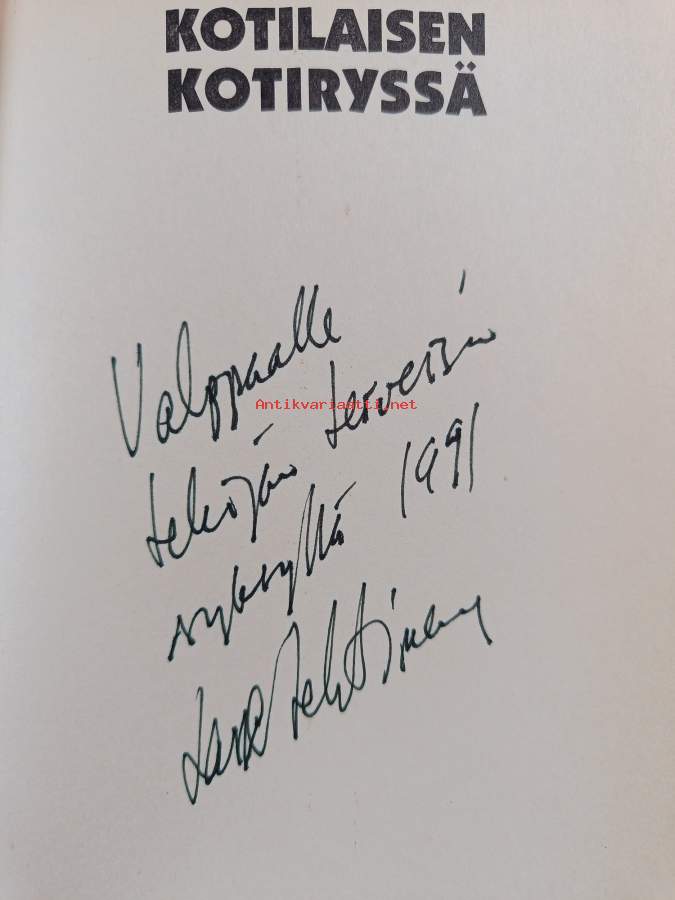 KOTILAISEN
KOTIRYSSÄ
Valppaalle
Antikvariaatti.net
tekijän terveisin
syksyllä 1991
Lasse Lehtinen